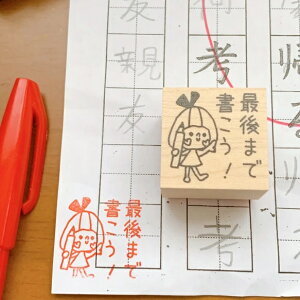 考
帰
友
親
友
最後まで
書こう！
考
最後まで
書こう！